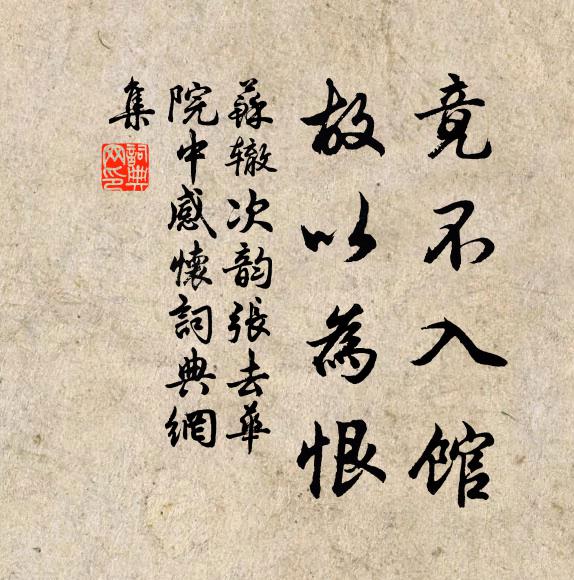 竟不入館
故以為恨
蘇辙次韵張去華
院中感懷詞典網
集
詞典网印